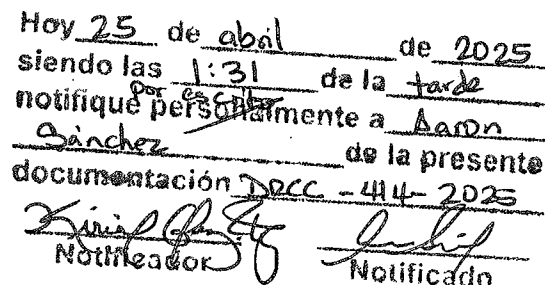 Hoy 25 de abril de 2025
siendo las 1:31 de la tarde
por escrito
notifique personalmente a Aaron
Sánchez de la presente
documentación DRCC - 414- 2025
Notificador Notificado